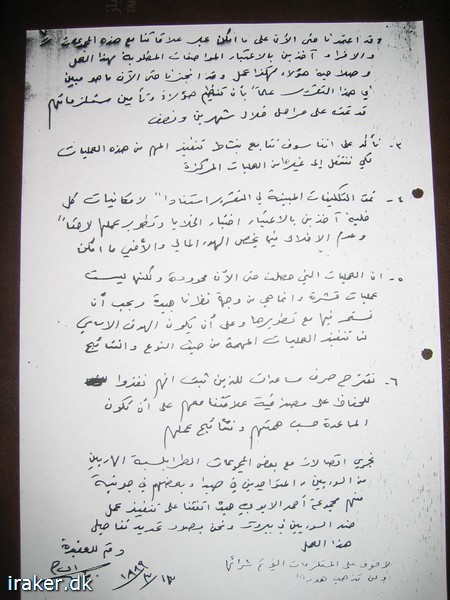 وقد اعتمدنا حتى الآن على ما أمكن عبر علاقاتنا مع هذه المجموعات
والأفراد آخذين بالاعتبار المواصفات المطلوبة بهذا العمل
وصلاحية هؤلاء لهكذا عمل وقد انجزنا حتى الآن ما هو مبين
في هذا التقرير علماً بأن تنظيم هؤلاء وتأمين مستلزماتهم
قد تمت على مراحل خلال شهرين ونصف
٣- نأكد على اننا سوف نتابع بنشاط تنفيذ المهم من هذه العمليات
لكي ننتقل إلى غيرها من العمليات المركزة
٤- تمت التكليفات المبينة في التقرير استناداً لإمكانيات كل
خلية آخذين بالاعتبار اختبار الخلايا وتطوير عملها لاحقاً
وعدم الإفلات فيما يخص الهدر المالي والأمني ما امكن
٥- ان العمليات التي حصلت حتى الآن محدودة ولكنها ليست
عمليات قشرة وانما هي من وجهة نظرنا جيدة ويجب أن
نستمر فيها مع تطويرها وعلى أن يكون الهدف الاساسي
لنا تنفيذ العمليات المهمة من حيث النوع والنتائج
٦- نقترح صرف مساعدات للذين ثبت انهم نفذوا
للحفاظ على مصداقية علاقتنا معهم على أن تكون
المساعدة حسب همتهم ونتائج عملهم
تجري اتصالات مع بعض المجموعات الطرابلسية الهاربين
من السوريين والمتواجدين في صيدا وبعضهم في جونية
منهم مجموعة أحمد الأيوبي حيث اتفقنا على تنفيذ عمل
ضد السوريين في بيروت ونحن بصدد تحديد تفاصيل
هذا العمل
ودم للعقيدة
لا خوف على المستلزمات التي تم شرائها
ولن تذهب هدراً
١٩٨٩/٣/١٣
iraker.dk